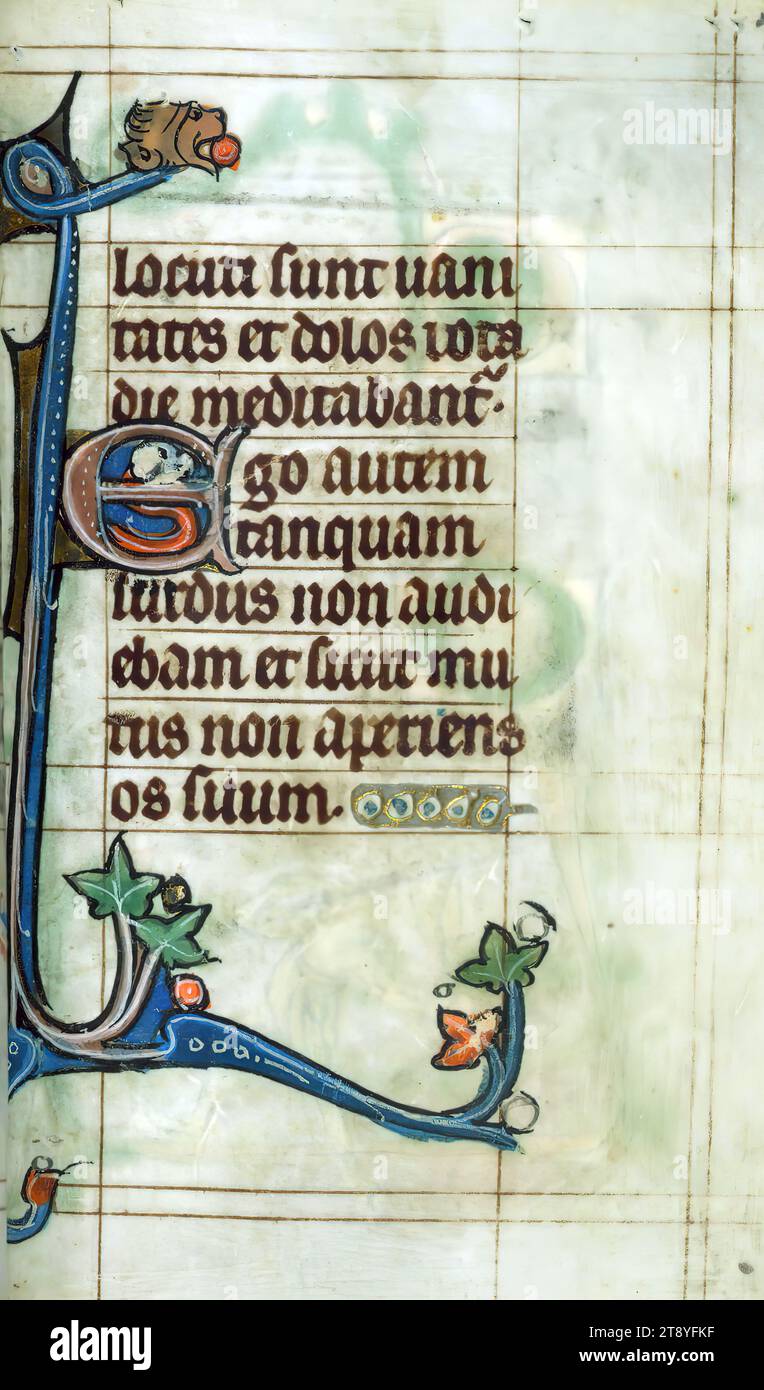 locuti sunt uani
tates et dolos tota
die meditabant᷑.
Ego autem
tanquam
surdus non audi
ebam et sicut mu
tus non aperiens
os suum.
alamy
alamy
alamy
Image ID: 2T8YFKF
www.alamy.com